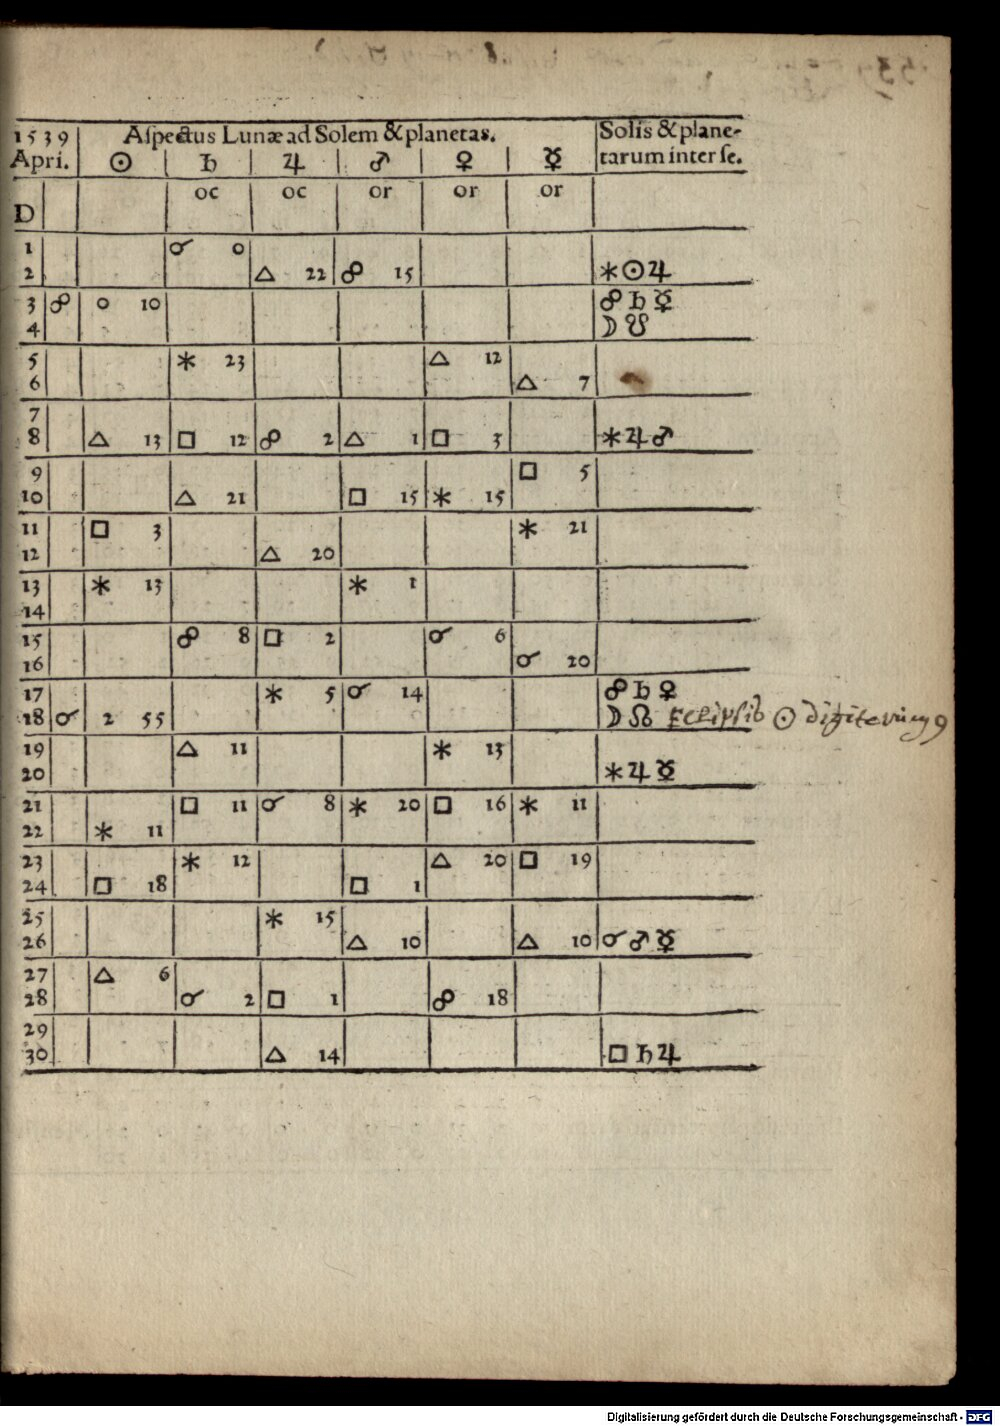 1539 Aſpectus Lunæ ad Solem & planetas. Solis & plane-
Apri. ☉ ♄ ♃ ♂ ♀ ☿ tarum inter ſe.
oc oc or or or
D
1 ☌ 0
2 △ 22 ☍ 15 ⚹ ☉ ♃
3 ☍ o 10 ☍ ♄ ☿
4 ☽ ☋
5 ⚹ 23 △ 12
6 △ 7
7
8 △ 13 □ 12 ☍ 2 △ 1 □ 3 ⚹ ♃ ♂
9 □ 5
10 △ 21 □ 15 ⚹ 15
11 □ 3 ⚹ 21
12 △ 20
13 ⚹ 13 ⚹ 1
14
15 ☍ 8 □ 2 ☌ 6
16 ☌ 20
17 ⚹ 5 ☌ 14 ☍ ♄ ♀
18 ☌ 2 55 ☽ ☊ Eclipsis ☉ 9
19 △ 11 ⚹ 13
20 ⚹ ♃ ☿
21 □ 11 ☌ 8 ⚹ 20 □ 16 ⚹ 11
22 ⚹ 11
23 ⚹ 12 △ 20 □ 19
24 □ 18 □ 1
25 ⚹ 15
26 △ 10 △ 10 ☌ ♂ ☿
27 △ 6
28 ☌ 2 □ 1 ☍ 18
29
30 △ 14 □ ♄ ♃
Digitalisierung gefördert durch die Deutsche Forschungsgemeinschaft - DFG